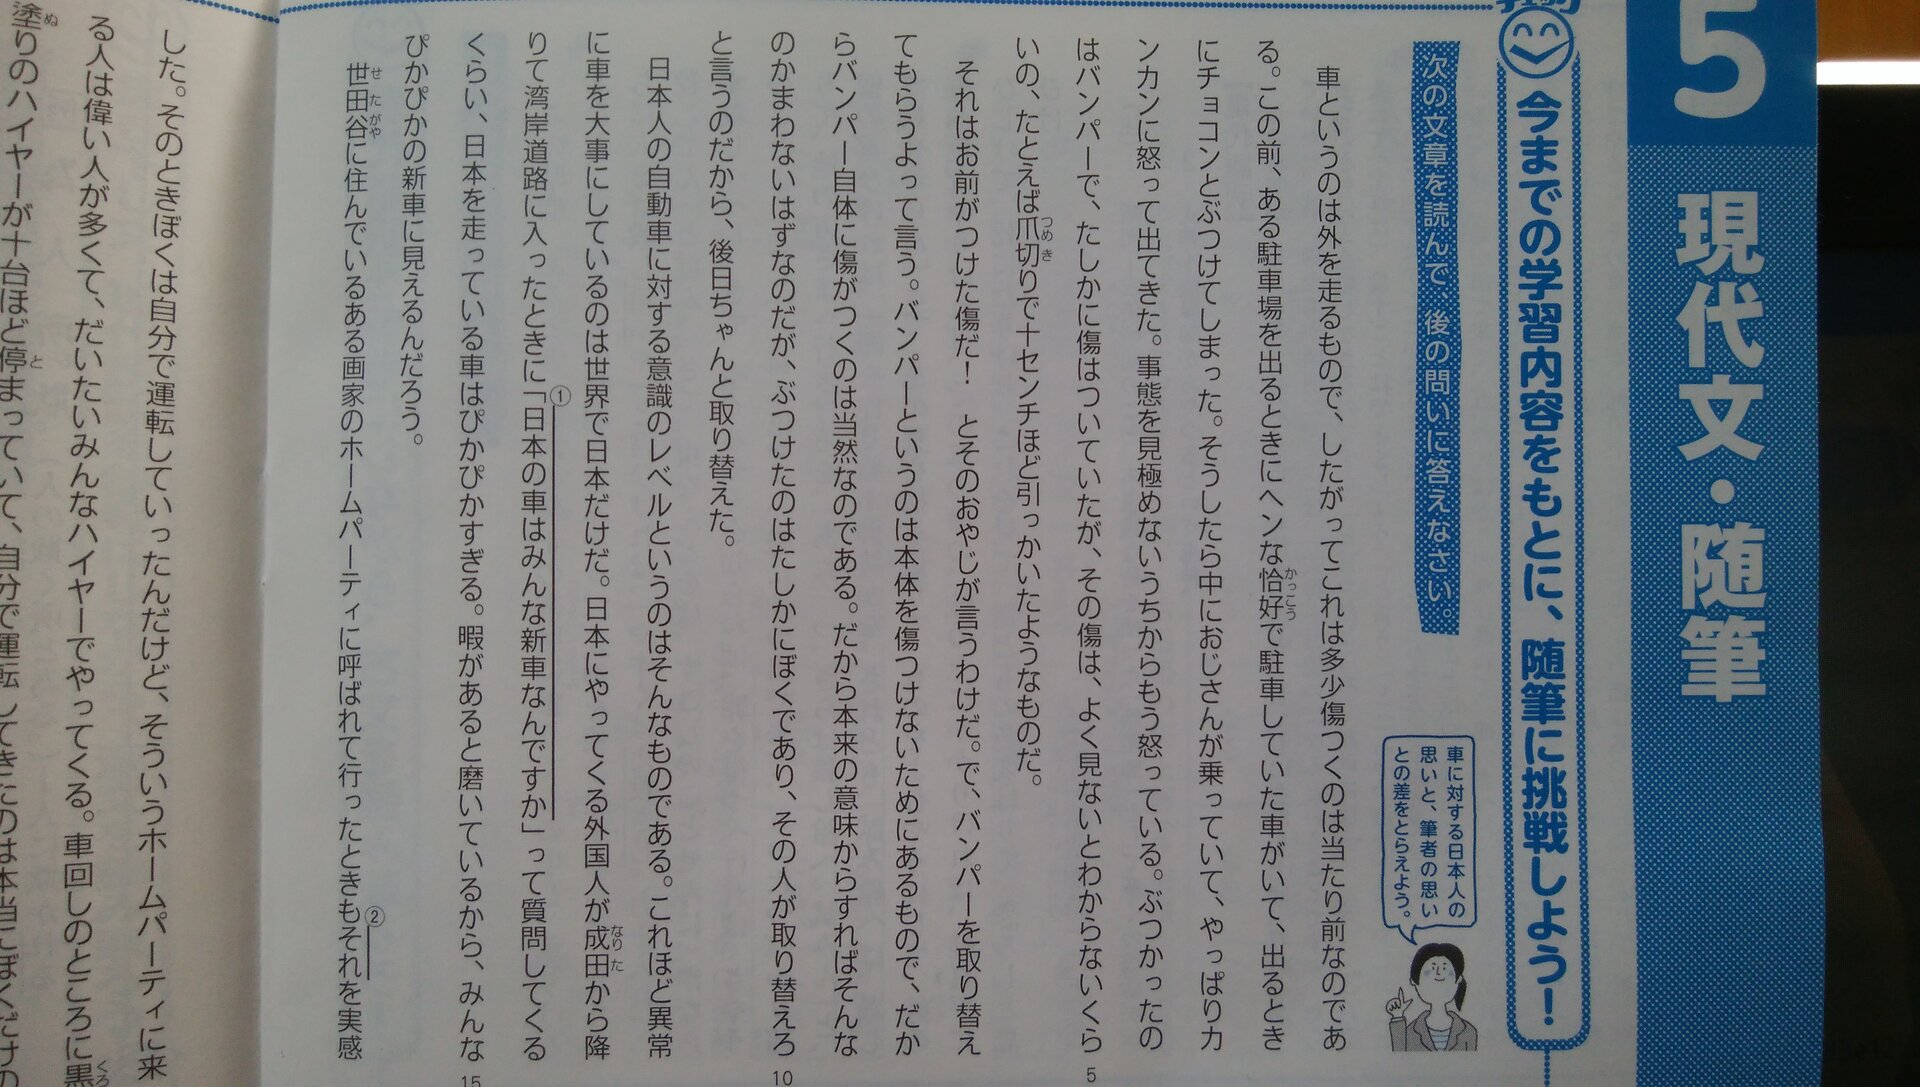 5 現代文・随筆
今までの学習内容をもとに、随筆に挑戦しよう！
次の文章を読んで、後の問いに答えなさい。
車に対する日本人の
思いと、筆者の思い
との差をとらえよう。
車というのは外を走るもので、したがってこれは多少傷つくのは当たり前なのであ
る。この前、ある駐車場を出るときにヘンな恰好で駐車していた車がいて、出るとき
かっこう
にチョコンとぶつけてしまった。そうしたら中におじさんが乗っていて、やっぱりカ
ンカンに怒って出てきた。事態を見極めないうちからもう怒っている。ぶつかったの
はバンパーで、たしかに傷はついていたが、その傷は、よく見ないとわからないくら
5
いの、たとえば爪切りで十センチほど引っかいたようなものだ。
つめき
それはお前がつけた傷だ！　とそのおやじが言うわけだ。で、バンパーを取り替え
てもらうよって言う。バンパーというのは本体を傷つけないためにあるもので、だか
らバンパー自体に傷がつくのは当然なのである。だから本来の意味からすればそんな
のかまわないはずなのだが、ぶつけたのはたしかにぼくであり、その人が取り替えろ
10
と言うのだから、後日ちゃんと取り替えた。
日本人の自動車に対する意識のレベルというのはそんなものである。これほど異常
に車を大事にしているのは世界で日本だけだ。日本にやってくる外国人が成田から降
なりた
りて湾岸道路に入ったときに「日本の車はみんな新車なんですか」って質問してくる
①
くらい、日本を走っている車はぴかぴかすぎる。暇があると磨いているから、みんな
15
ぴかぴかの新車に見えるんだろう。
世田谷に住んでいるある画家のホームパーティに呼ばれて行ったときもそれを実感
せたがや
②
した。そのときぼくは自分で運転していったんだけど、そういうホームパーティに来
る人は偉い人が多くて、だいたいみんなハイヤーでやってくる。車回しのところに黒
くろ
塗りのハイヤーが十台ほど停まっていて、自分で運転してきたのは本当にぼくだけの
ぬ
と